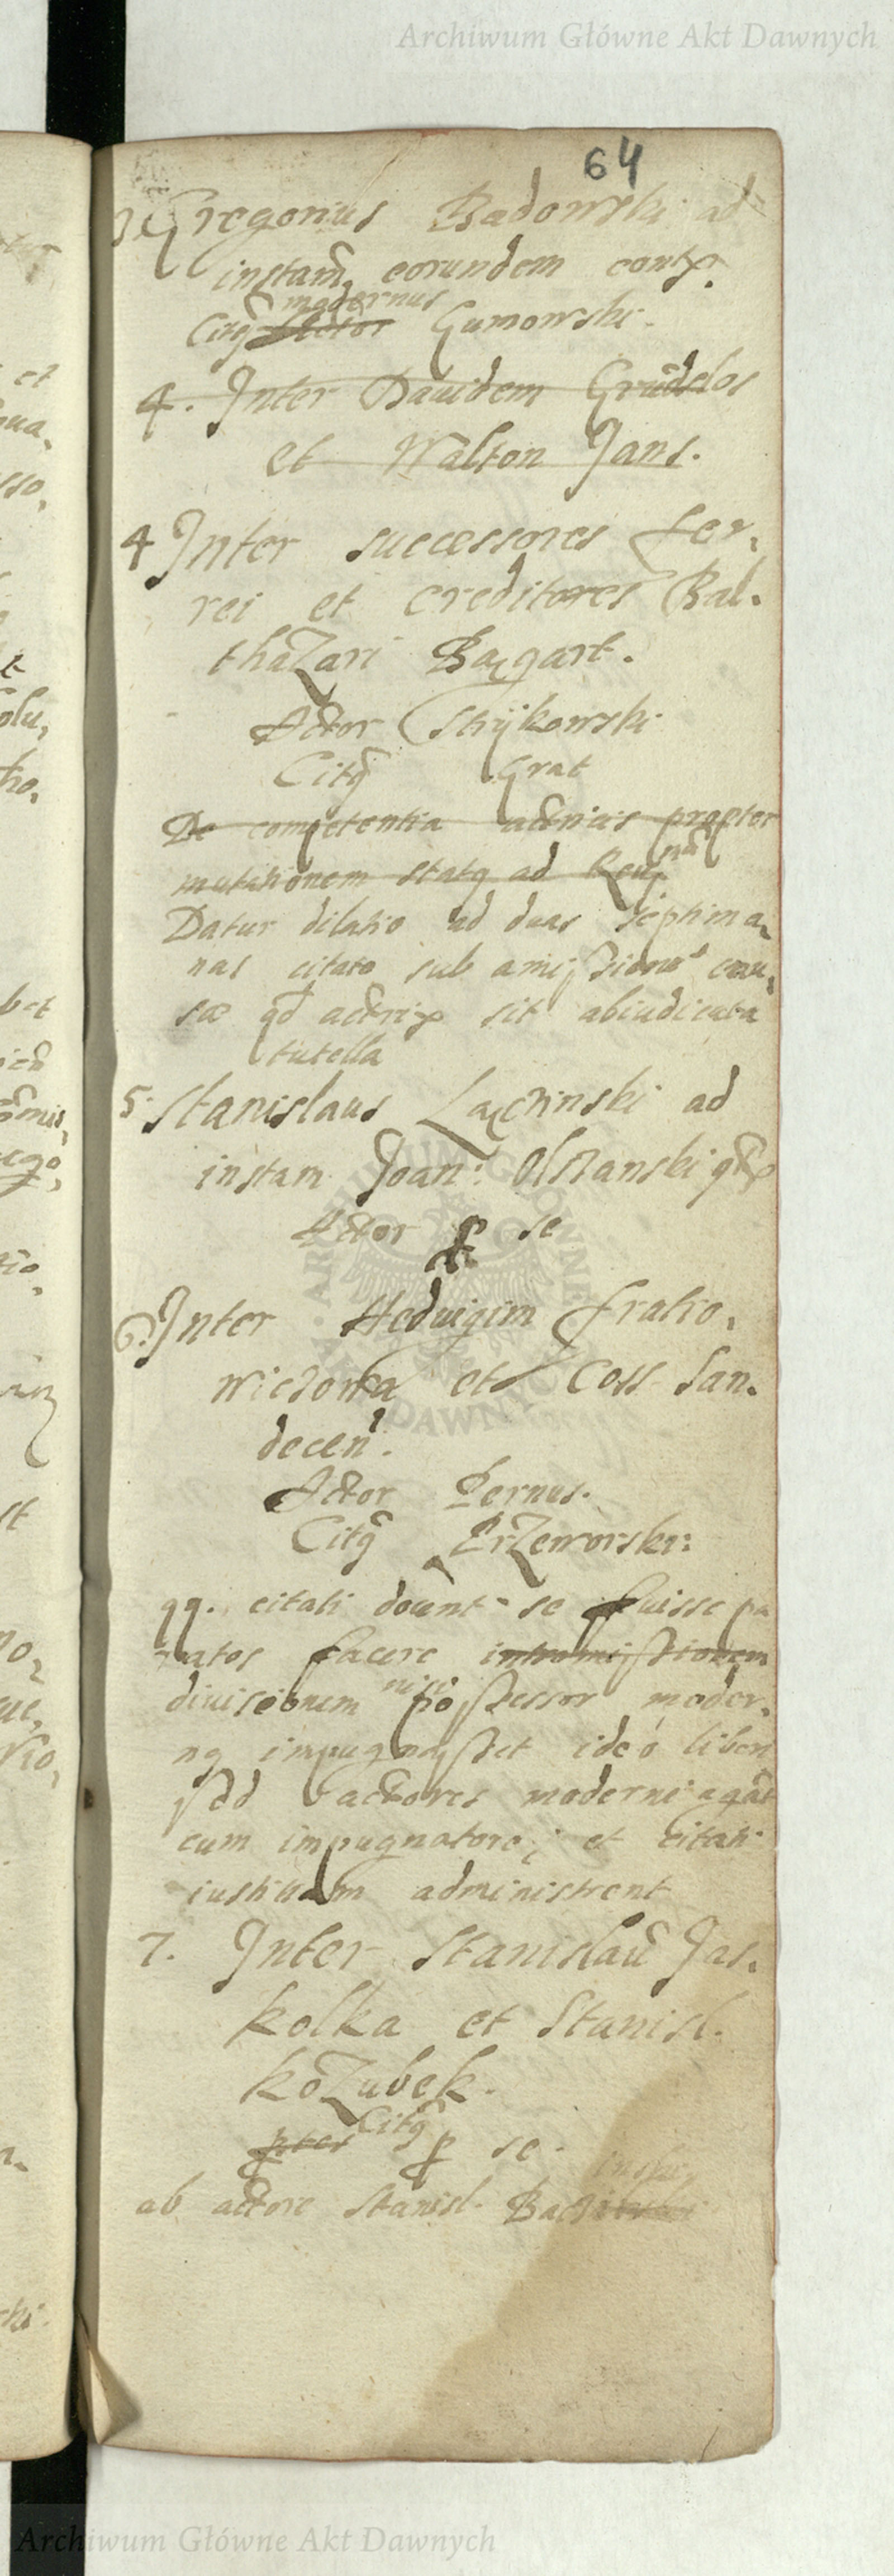 Archiwum Główne Akt Dawnych
64
3. Gregorius Badowski ad
instam eorundem contx.
modernus
Citg Actor Gumowski.
4. Inter Dauidem Grudelos
et Walton Jans.
4 Inter successores Fer,
rei et creditores Bal.
thazari Bargart.
Actor Strijkowski
Citg Grat
De competentia actricis propter
mutationem statg ad
Datur dilatio ad duas septima,
nas citato sub amissione cau,
sæ qd actrix sit abiudicata
tutella
5. Stanislaus Lączinski ad
instam Joan: Olszanski
Actor p se
6. Inter Heduigim Fratio,
wiczowa et Coss San.
decen.
Actor Pernus.
Citg Przeworski:
qq. citati dount se fuisse pa
ratos facere intromissionem
nisi
diuisionem possessor moder,
ng impugnasset ideo liberi
sed actores moderni agat
cum impugnatore; et citati
iustitiam administrent
7. Inter Stanislau Jas.
kolka et Stanisl.
kozubek.
Citg
ptes p se.
ab actore Stanisl.
Archiwum Główne Akt Dawnych